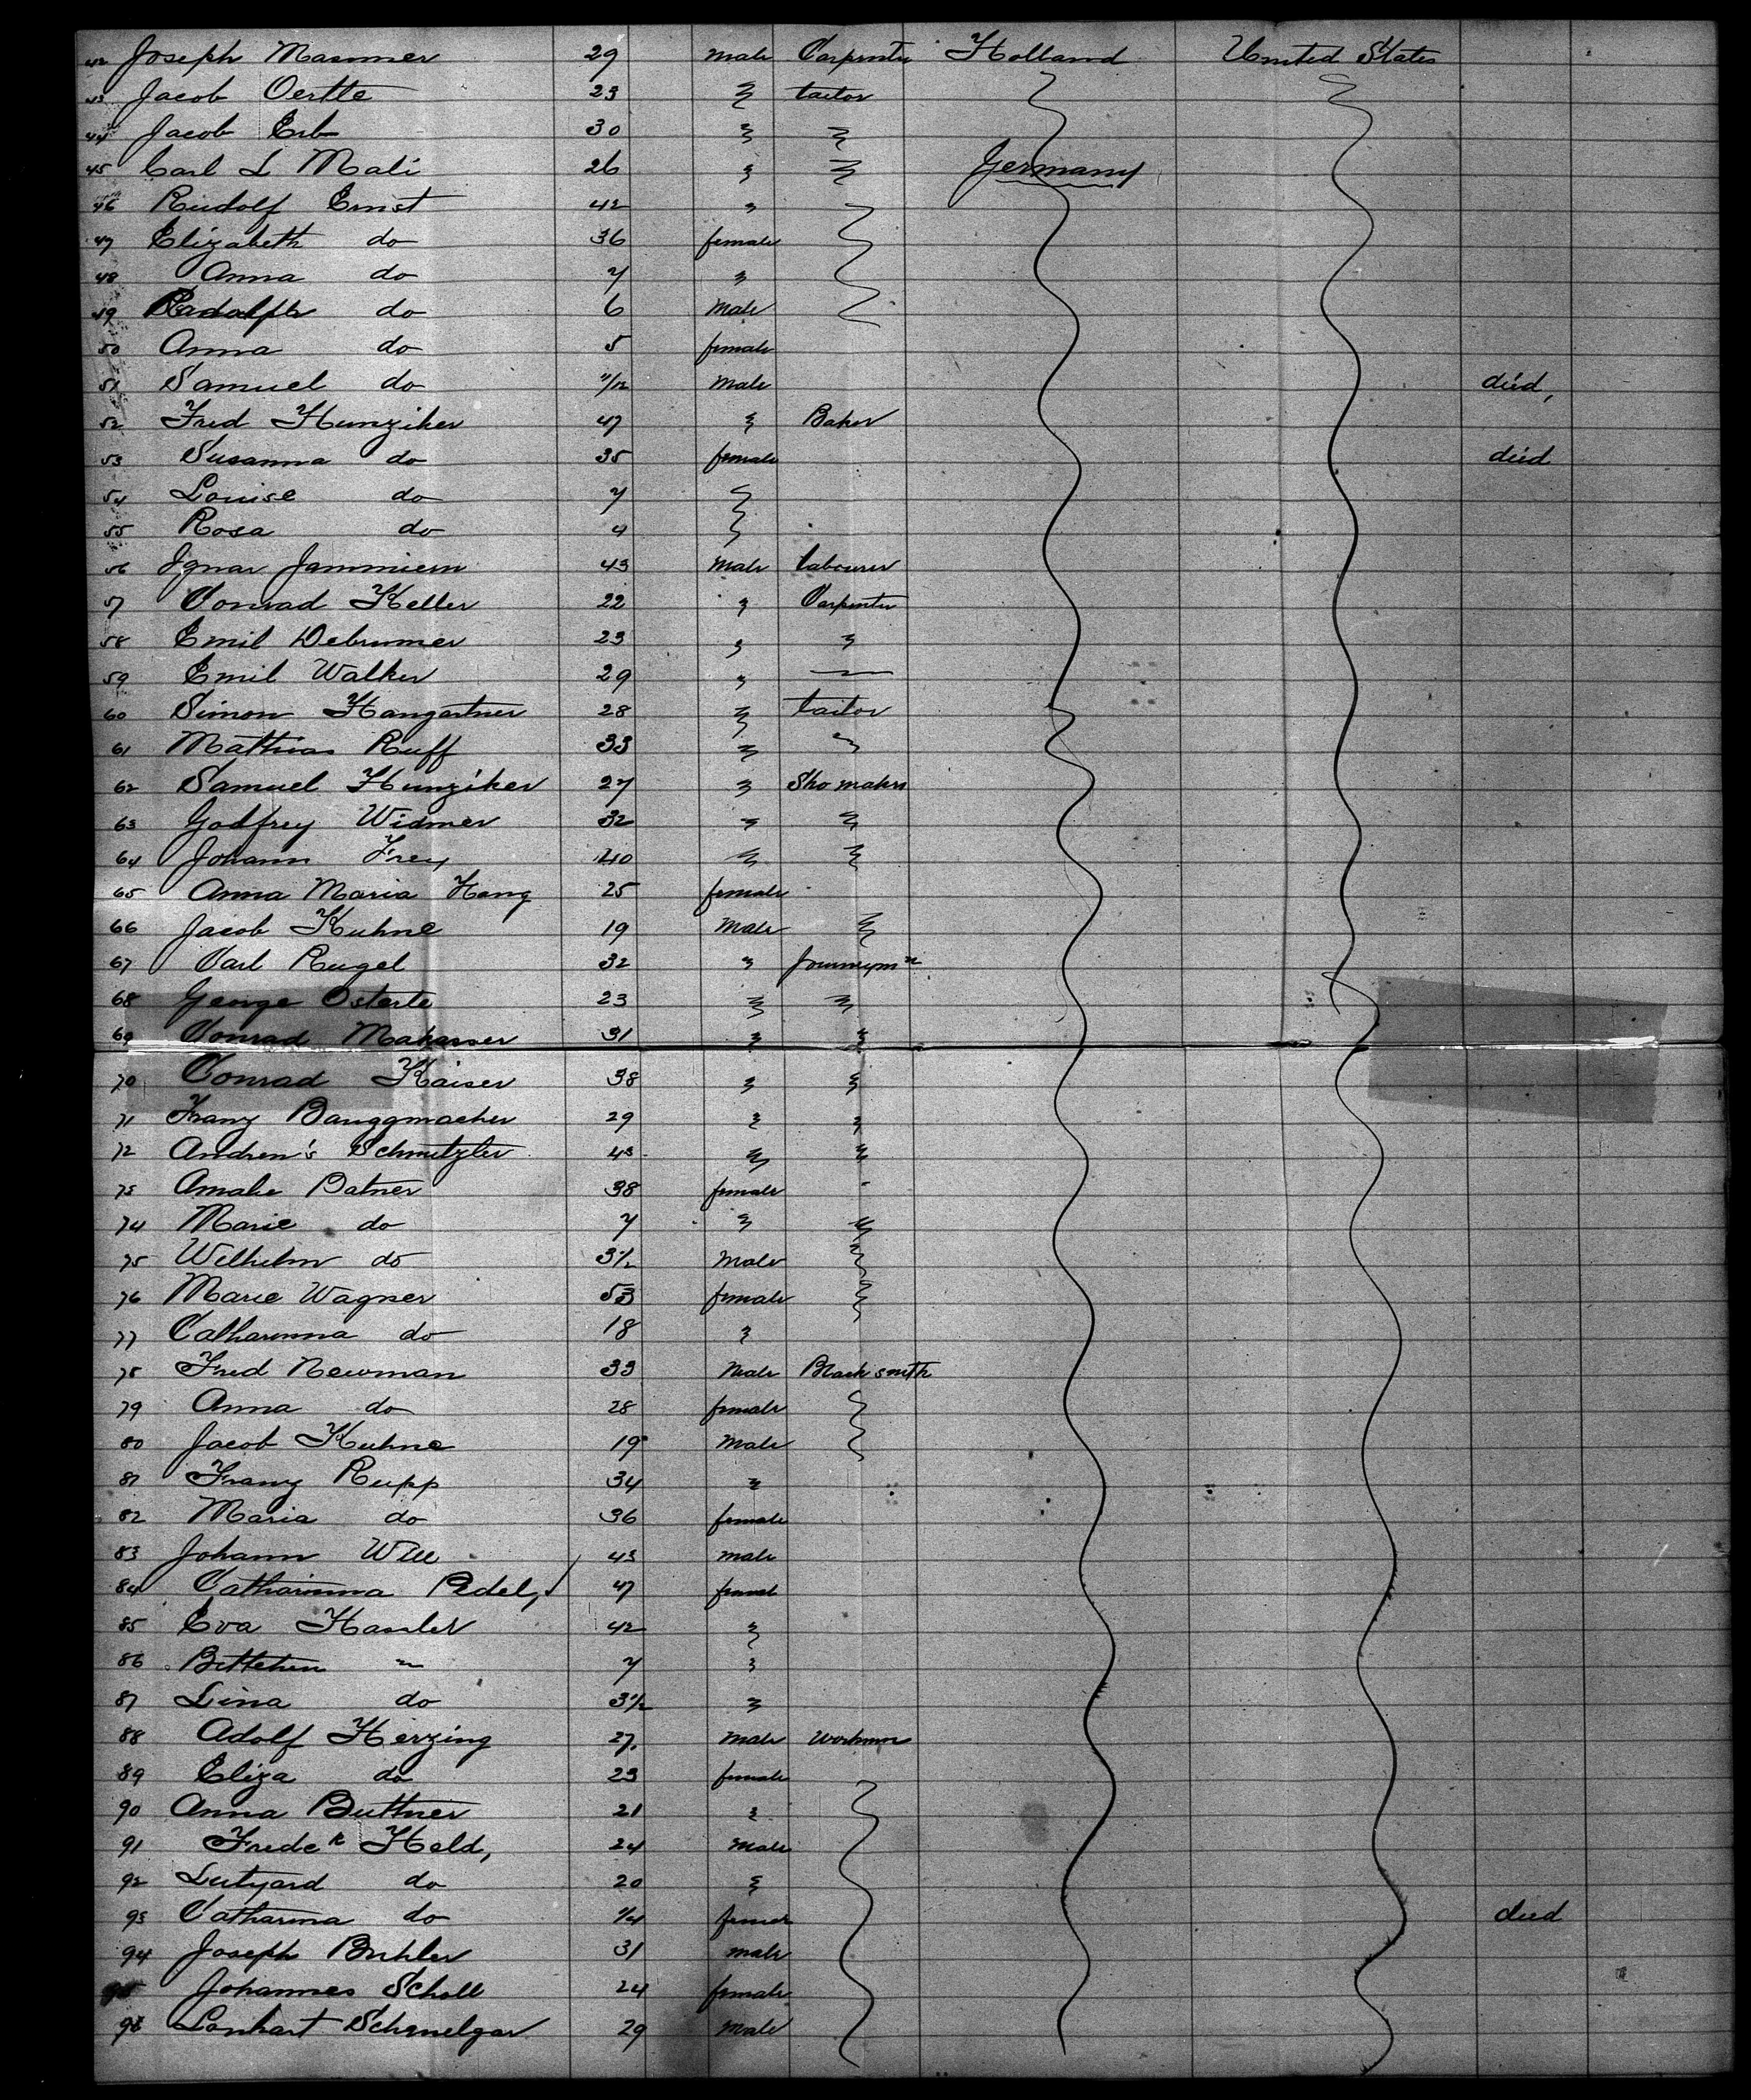 42 Joseph Mammer 29 male Carpenter Holland United States
43 Jacob Oertte 23 " tailor
44 Jacob Erb 30 " "
45 Carl L Mali 26 " " Germany
46 Rudolf Ernst 42 "
47 Elizabeth do 36 female
48 Anna do 7 "
49 Radolph do 6 male
50 Anna do 5 female
51 Samuel do 11/12 male died,
52 Fred Hunziker 47 " Baker
53 Susanna do 35 female died
54 Louise do 7
55 Rosa do 4
56 Ignar Jammiem 43 male labourer
57 Conrad Keller 22 " Carpenter
58 Emil Debrunner 23 " "
59 Emil Walker 29 " —
60 Simon Hangartner 28 " tailor
61 Mathias Ruff 33 " "
62 Samuel Hunziker 27 " Sho maker
63 Godfrey Widmer 32 " "
64 Johann Frey 40 " "
65 Anna Maria Hang 25 female
66 Jacob Kuhne 19 male "
67 Carl Rugel 32 " Journeymn
68 George Osterte 23 " "
69 Conrad Makasser 31 " "
70 Conrad Kaiser 38 " "
71 Franz Banggmacher 29 " "
72 Andren's Schmitzler 43 " "
73 Amalie Batner 38 female "
74 Marie do 7 " "
75 Wilhelm do 3½ male
76 Marie Wagner 53 female
77 Catharinna do 18 "
78 Fred Newman 33 male Black smith
79 Anna do 28 female
80 Jacob Kuhne 19 male
81 Franz Rupp 34 "
82 Maria do 36 female
83 Johann Will 43 male
84 Catharinna Redel, 47 femal
85 Eva Hassler 42 "
86 Bettehen " 7 "
87 Lina do 3½ "
88 Adolf Herzing 27. male workman
89 Eliza do 23 female
90 Anna Buttner 21 "
91 Fredek Held, 24 male
92 Lutgard do 20 "
93 Catharina do ¼ female died
94 Joseph Buhler 31 male
95 Johannes Scholl 24 female
96 Lonhart Schmelgar 29 male